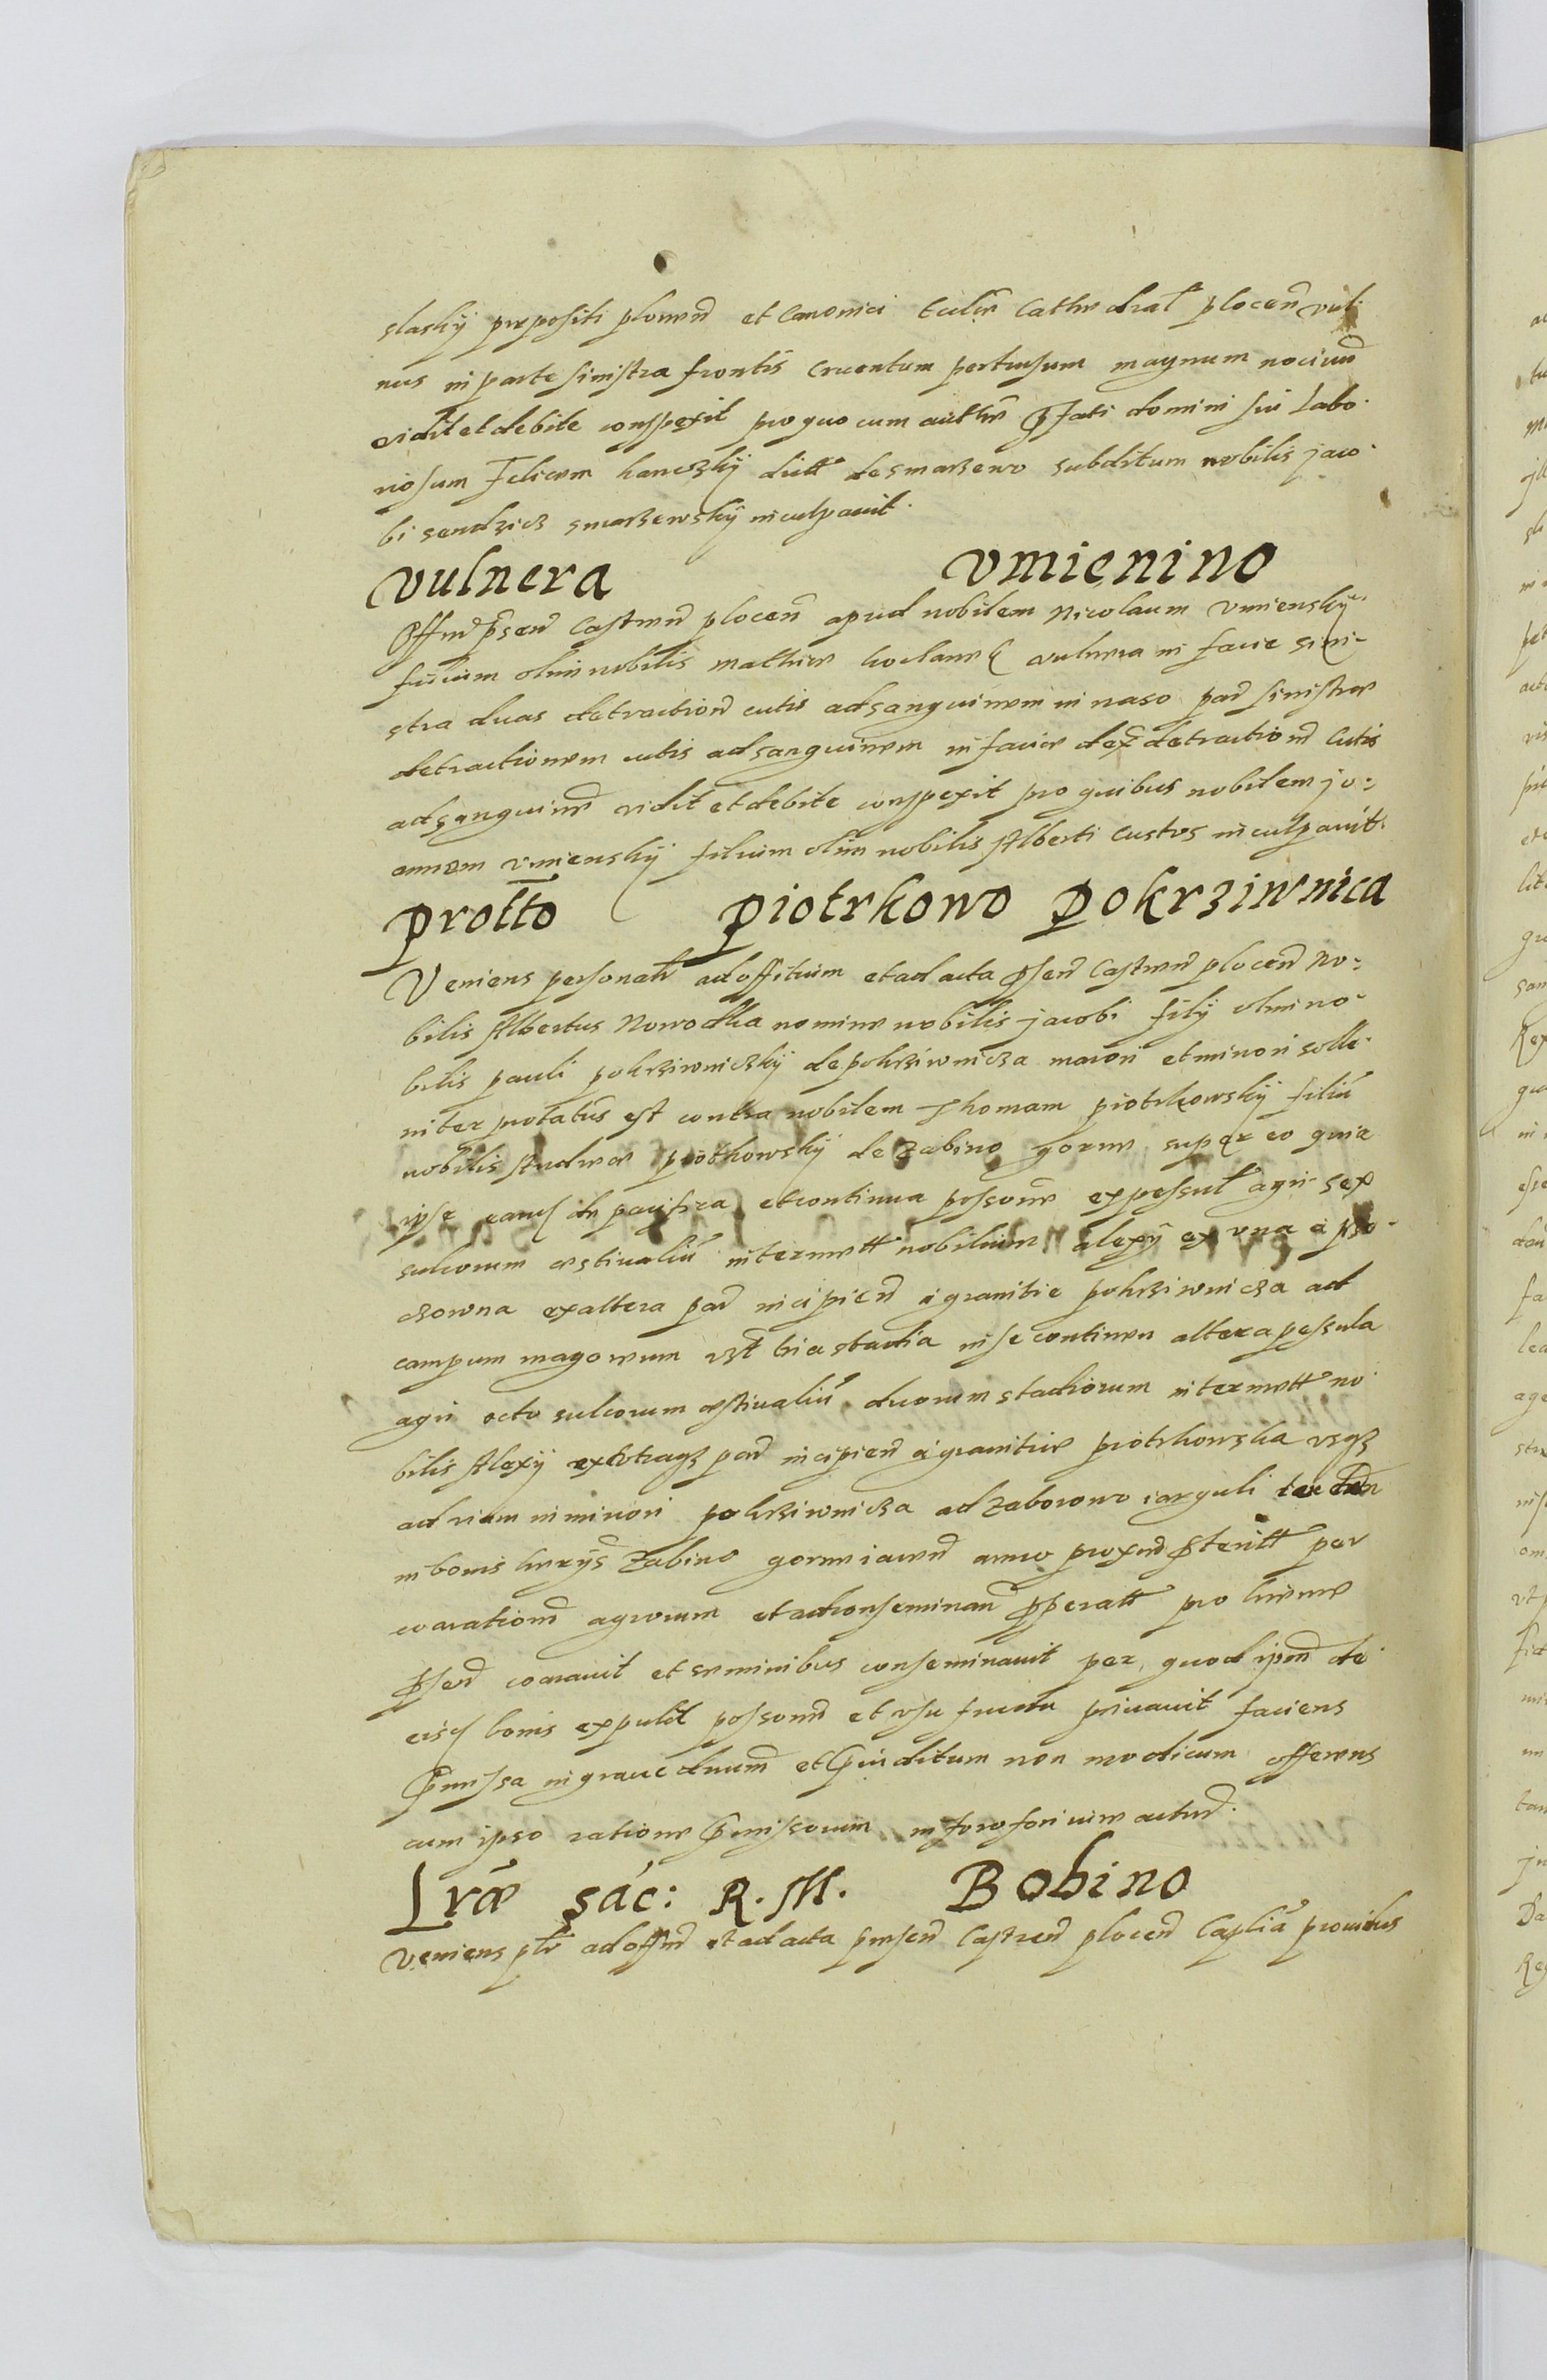 slasky præpositi plonen et Canonici Ecclie Cathedral plocen vul
nus in parte sinistra frontis cruentum pertusum magnum nociuu
vidit et debite conspexit pro quo cum aucthore pfati domini sui Labo
riosum Felicem kanczky dictt de smarzewo subditum nobilis jaco
bi sendzicz smarzewsky inculpauit.
vulnera vmienino
Offm psen Castren plocen apud nobilem Nicolaum vmiensky
filium olim nobilis mathie vulnera in facie sini
stra duas detraction cutis ad sanguinem in naso par sinistra
detractionem cutis ad sanguinem in facie dex detractionem Cutis
ad sanguinem vidit et debite conspexit pro quibus nobilem jo:
annem vmiensky filium olim nobilis Alberti Custos inculpauit.
protto piotrkowo pokrziwnica
Veniens personalr ad officium et ad acta psen Castren plocen No:
bilis Albertus Nowodka nomine nobilis jacobi filij olim no
bilis pauli pokrziwniczky de pokrziwnicza maiori et minori solle
niter protatus est contra nobilem Thomam piotrkowsky filiu
nobilis Andreæ piotrkowsky de zabino gorne super eo quia
ipse pacifica et continua possone expessul agri sex
sulcorum æstiualiu intermett nobilium alexij ex vna a pso
czowna ex altera par incipien a granitie pokrziwnicza ad
campum magowum vst tria stadia in se continen altera pessula
agri octo sulcorum æstiualiu duorum stadiorum intermett no
bilis Alexij ex vtraqz par incipien a granitie piotrkowska vsqz
ad viam in minori pokrziwnicza ad zaborowo
in bonis Zabino gorne iacen anno proxm pterittt per
coarationem agrorum et ad conseminan pperatt pro hieme
psen coarauit et seminibus conseminauit per quod ipm de
eisd bonis expulit possonem et vsu fructu priuauit faciens
pmissa in graue dnum et piuditum non modicum offerens
cum ipso ratione pmissorum in foro fori iure actur.
Lræ sac: R. M. Bobino
Veniens plr ad offm et ad acta presen Castren plocen Caplia prouidus